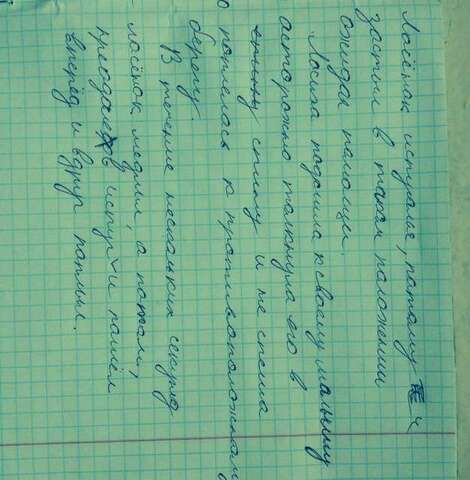 Лосёнок испугался, потому ч
застыл в таком положении
ожидая помощи.
Лосиха подошла к своему малышу
осторожно толкнула его в
спину и не спеша
о поплелась к противоположному
берегу.
В течение нескольких секунд
лосёнок медлил, а потом,
преодолев испуг и пошёл
вперёд и вдруг поплыл.